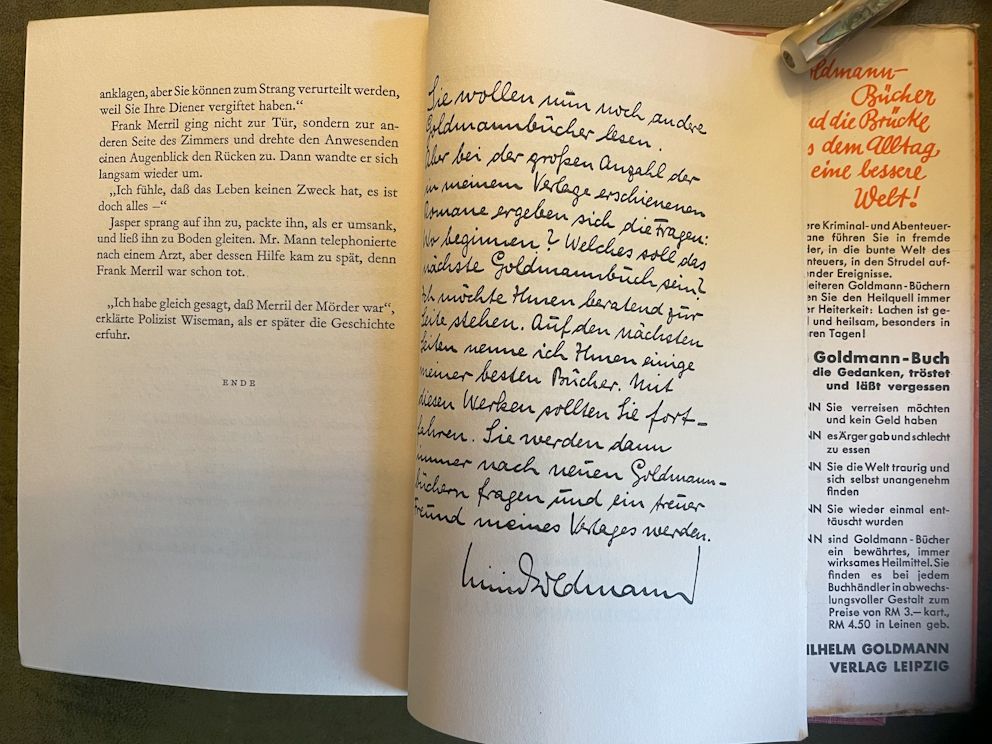 anklagen, aber Sie können zum Strang verurteilt werden,
weil Sie Ihre Diener vergiftet haben.“
Frank Merril ging nicht zur Tür, sondern zur an-
deren Seite des Zimmers und drehte den Anwesenden
einen Augenblick den Rücken zu. Dann wandte er sich
langsam wieder um.
„Ich fühle, daß das Leben keinen Zweck hat, es ist
doch alles –“
Jasper sprang auf ihn zu, packte ihn, als er umsank,
und ließ ihn zu Boden gleiten. Mr. Mann telephonierte
nach einem Arzt, aber dessen Hilfe kam zu spät, denn
Frank Merril war schon tot.
„Ich habe gleich gesagt, daß Merril der Mörder war“,
erklärte Polizist Wiseman, als er später die Geschichte
erfuhr.
ENDE
Sie wollen nun noch andere
Goldmannbücher lesen.
Aber bei der großen Anzahl der
in meinem Verlage erschienenen
Romane ergeben sich die Fragen:
Wo beginnen? Welches soll das
nächste Goldmannbuch sein?
Ich möchte Ihnen beratend zur
Seite stehen. Auf den nächsten
Seiten nenne ich Ihnen einige
meiner besten Bücher. Mit
diesen Werken sollten Sie fort-
fahren. Sie werden dann
immer nach neuen Goldmann-
büchern fragen und ein treuer
Freund meines Verlages werden.
Goldmann
oldmann-
Bücher
nd die Brücke
s dem Alltag,
eine bessere
Welt!
ere Kriminal- und Abenteuer-
ane führen Sie in fremde
der, in die bunte Welt des
nteuers, in den Strudel auf-
nder Ereignisse.
eiteren Goldmann-Büchern
en Sie den Heilquell immer
er Heiterkeit: Lachen ist ge-
d und heilsam, besonders in
ren Tagen!
Goldmann-Buch
die Gedanken, tröstet
und läßt vergessen
NN Sie verreisen möchten
und kein Geld haben
NN es Ärger gab und schlecht
zu essen
NN Sie die Welt traurig und
sich selbst unangenehm
finden
NN Sie wieder einmal ent-
täuscht wurden
NN sind Goldmann-Bücher
ein bewährtes, immer
wirksames Heilmittel. Sie
finden es bei jedem
Buchhändler in abwechs-
lungsvoller Gestalt zum
Preise von RM 3.— kart.,
RM 4.50 in Leinen geb.
ILHELM GOLDMANN
VERLAG LEIPZIG